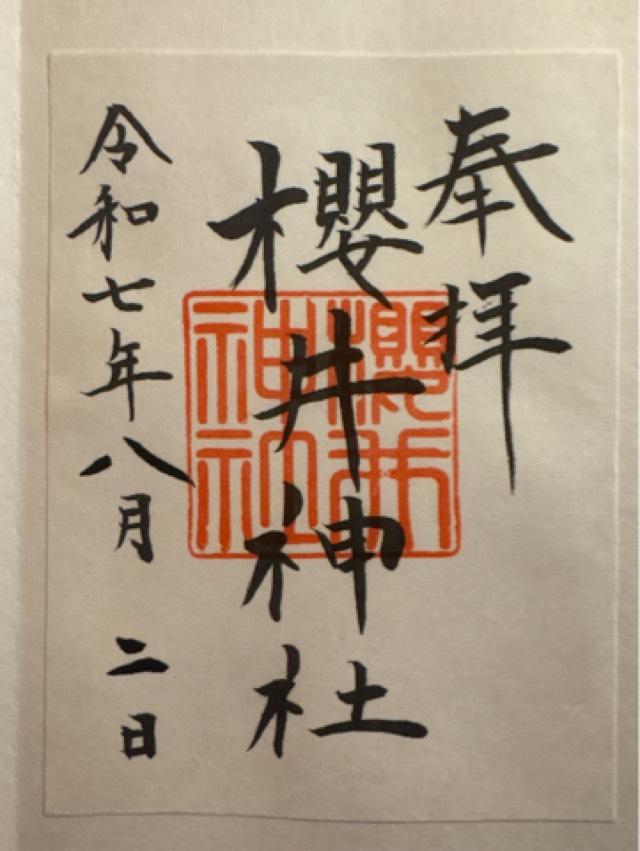 奉拝
櫻井神社
櫻井
神社
令和七年八月二日